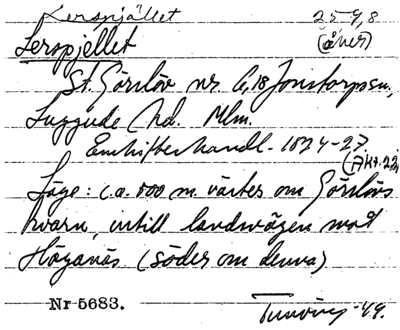 Lerspjället 25-9,8
Lerspjellet (åker)
St. Görslöv nr 6,18 Jonstorps sn,
Luggude hd. Mlm.
Enskifteshandl. 1824-27.
(Akt. 22)
Läge: c:a 500 m. väster om Görslövs
kvarn, intill landsvägen mot
Höganäs (söder om denna)
Nr 5683. Tunving -49.